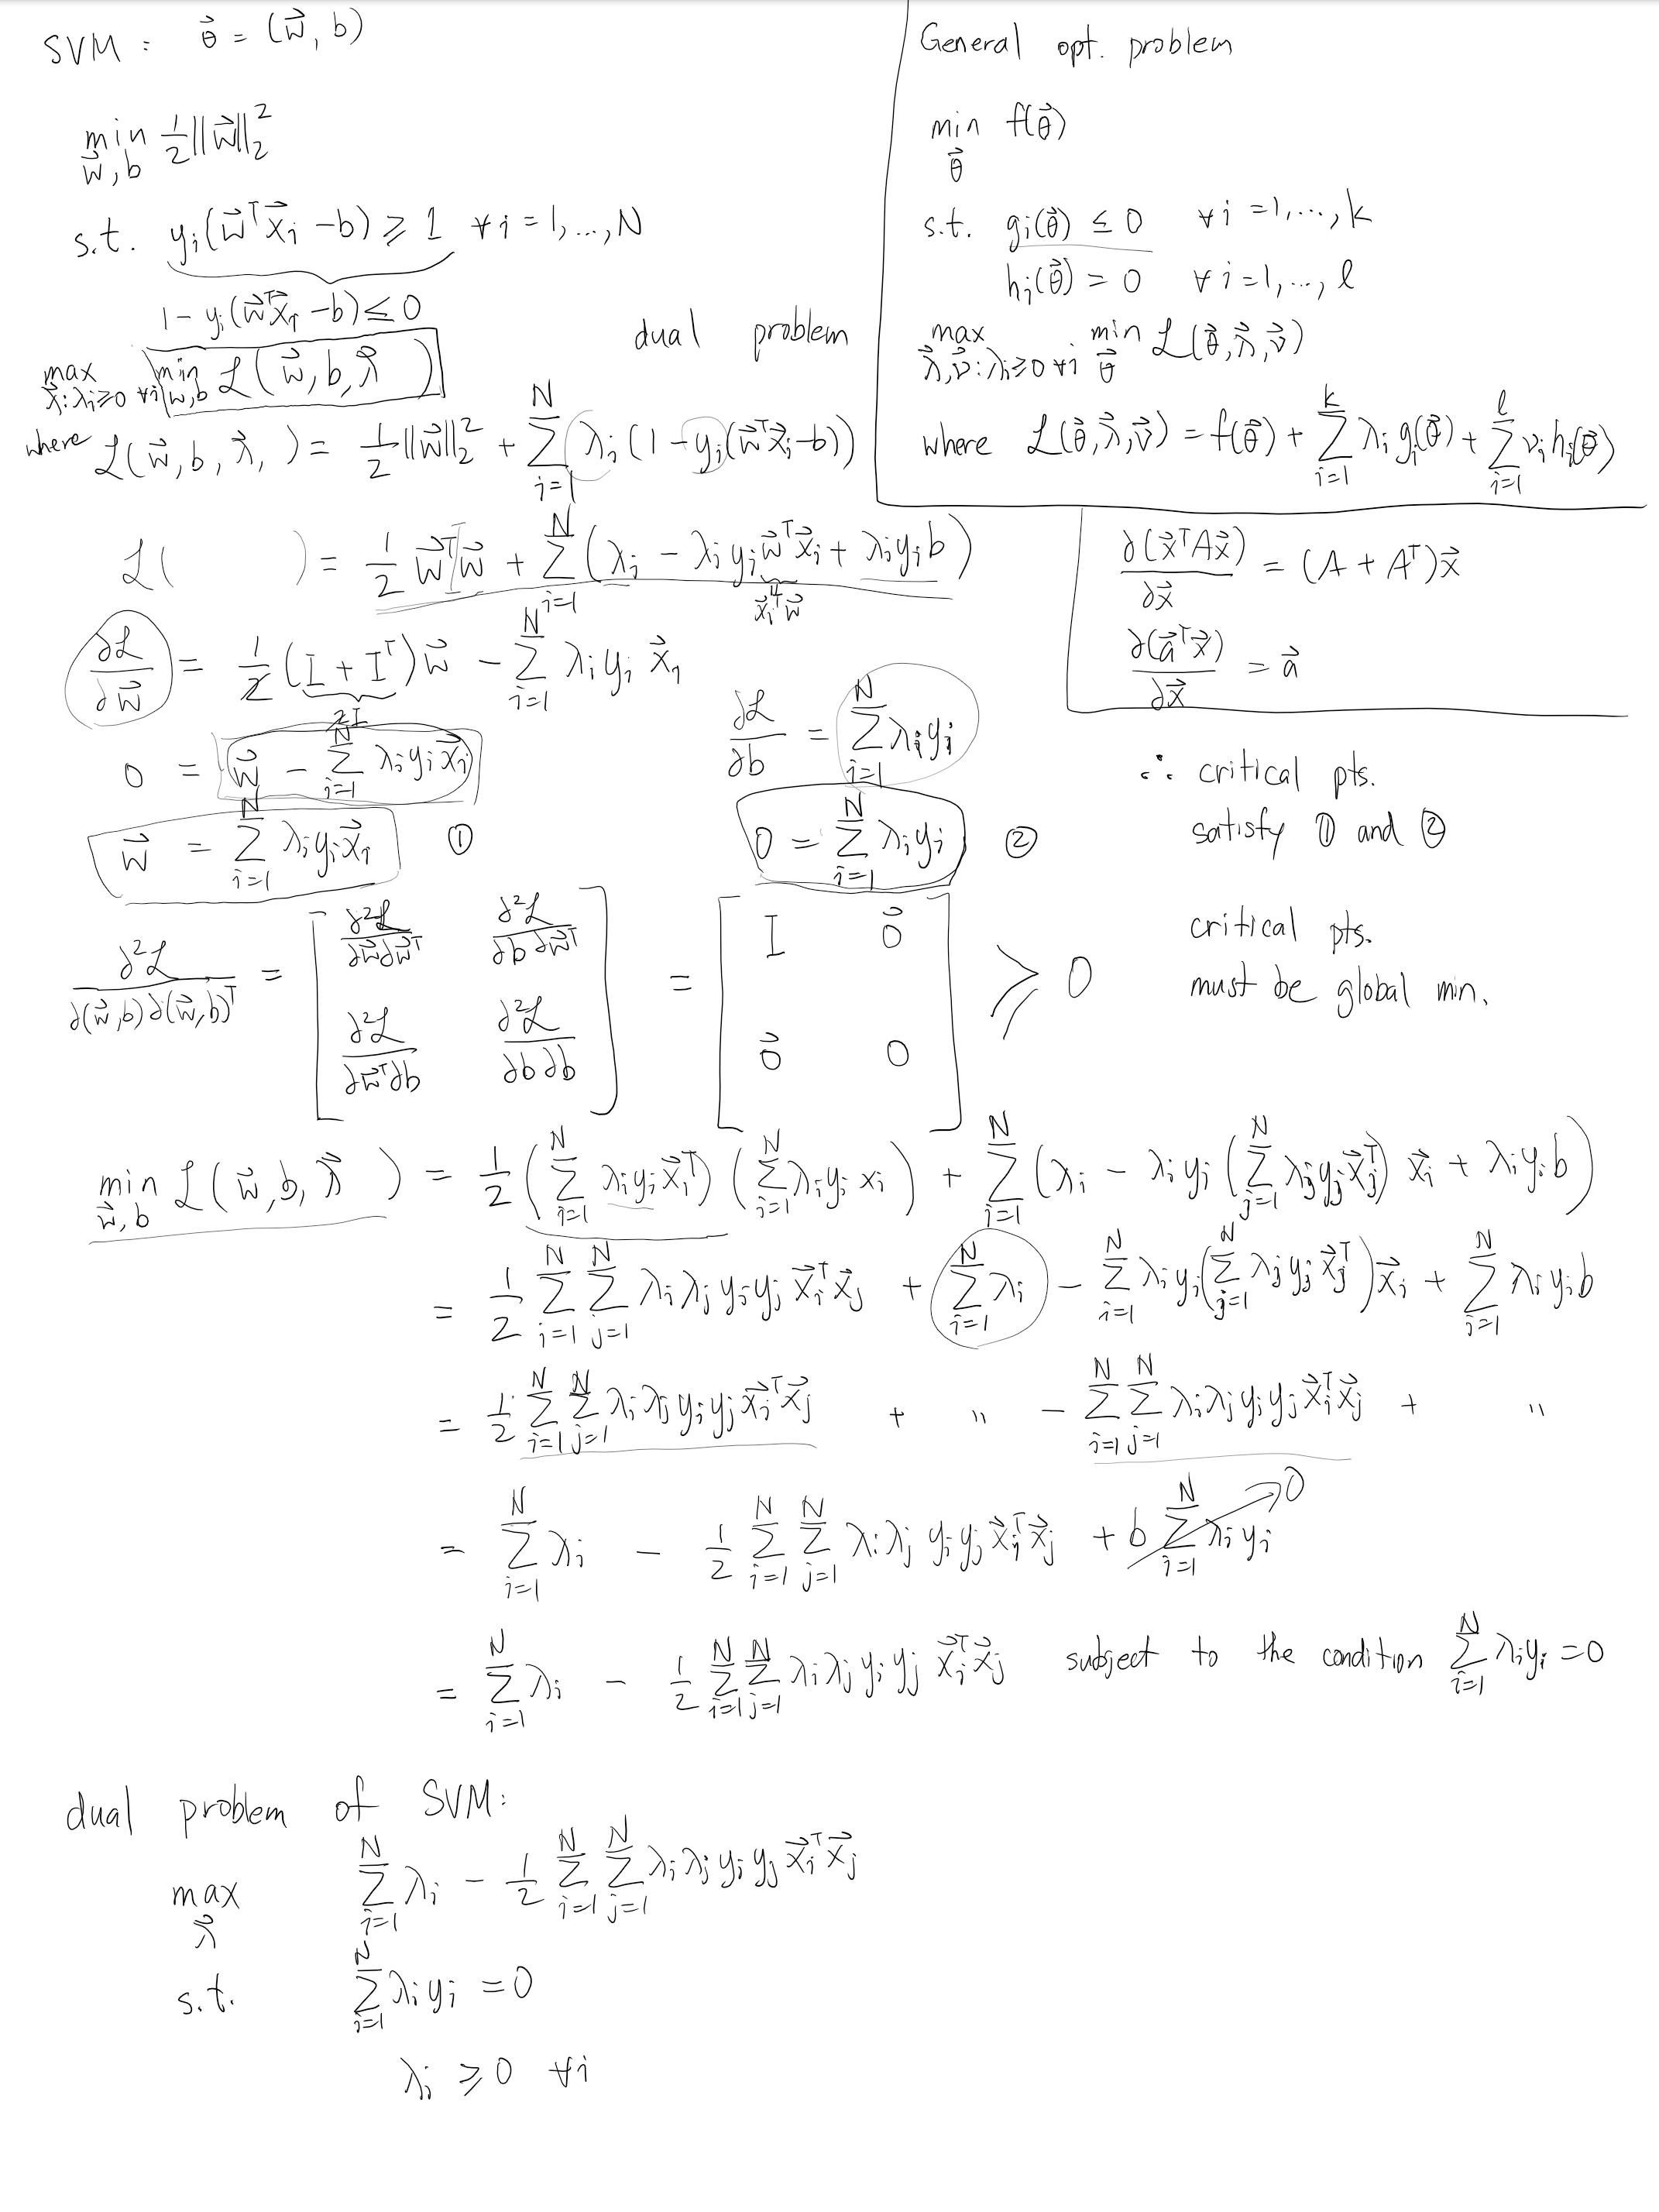 SVM: θ⃗ = (w⃗, b)
min_{w⃗,b} ½||w⃗||₂²
s.t. yᵢ(w⃗ᵀx⃗ᵢ − b) ⩾ 1 ∀i = 1, ..., N
1 − yᵢ(w⃗ᵀx⃗ᵢ − b) ≤ 0
dual problem
max_{λ⃗: λᵢ≥0 ∀i} min_{w⃗,b} ℒ(w⃗, b, λ⃗ )
where ℒ(w⃗, b, λ⃗, ) = ½||w⃗||₂² + Σ_{i=1}^{N} λᵢ(1 − yᵢ(w⃗ᵀx⃗ᵢ − b))
General opt. problem
min_{θ⃗} f(θ⃗)
s.t. gᵢ(θ⃗) ≤ 0 ∀i = 1, ..., k
hᵢ(θ⃗) = 0 ∀i = 1, ..., l
max_{λ⃗,ν⃗: λᵢ≥0 ∀i} min_{θ⃗} ℒ(θ⃗, λ⃗, ν⃗)
where ℒ(θ⃗, λ⃗, ν⃗) = f(θ⃗) + Σ_{i=1}^{k} λᵢ gᵢ(θ⃗) + Σ_{i=1}^{l} νᵢ hᵢ(θ⃗)
ℒ( ) = ½ w⃗ᵀ I w⃗ + Σ_{i=1}^{N} (λᵢ − λᵢyᵢw⃗ᵀx⃗ᵢ + λᵢyᵢb)
x⃗ᵢᵀw⃗
∂(x⃗ᵀAx⃗)/∂x⃗ = (A + Aᵀ)x⃗
∂(a⃗ᵀx⃗)/∂x⃗ = a⃗
∂ℒ/∂w⃗ = ½(I + Iᵀ)w⃗ − Σ_{i=1}^{N} λᵢyᵢ x⃗ᵢ
2I
∂ℒ/∂b = Σ_{i=1}^{N} λᵢyᵢ
0 = w⃗ − Σ_{i=1}^{N} λᵢyᵢx⃗ᵢ
w⃗ = Σ_{i=1}^{N} λᵢyᵢx⃗ᵢ ①
0 = Σ_{i=1}^{N} λᵢyᵢ ②
∴ critical pts.
satisfy ① and ②
∂²ℒ/∂(w⃗,b)∂(w⃗,b)ᵀ = [ ∂²ℒ/∂w⃗∂w⃗ᵀ ∂²ℒ/∂b∂w⃗ᵀ ; ∂²ℒ/∂w⃗ᵀ∂b ∂²ℒ/∂b∂b ] = [ I 0⃗ ; 0⃗ 0 ] ≽ 0
critical pts.
must be global min.
min_{w⃗,b} ℒ(w⃗, b, λ⃗ ) = ½ (Σ_{i=1}^{N} λᵢyᵢx⃗ᵢᵀ)(Σ_{i=1}^{N} λᵢyᵢ xᵢ) + Σ_{i=1}^{N} (λᵢ − λᵢyᵢ (Σ_{j=1}^{N} λⱼyⱼx⃗ⱼᵀ) x⃗ᵢ + λᵢyᵢb)
= ½ Σ_{i=1}^{N} Σ_{j=1}^{N} λᵢλⱼ yᵢyⱼ x⃗ᵢᵀx⃗ⱼ + Σ_{i=1}^{N} λᵢ − Σ_{i=1}^{N} λᵢyᵢ(Σ_{j=1}^{N} λⱼyⱼ x⃗ⱼᵀ)x⃗ᵢ + Σ_{i=1}^{N} λᵢyᵢb
= ½ Σ_{i=1}^{N} Σ_{j=1}^{N} λᵢλⱼ yᵢyⱼ x⃗ᵢᵀx⃗ⱼ + " − Σ_{i=1}^{N} Σ_{j=1}^{N} λᵢλⱼ yᵢyⱼ x⃗ᵢᵀx⃗ⱼ + "
= Σ_{i=1}^{N} λᵢ − ½ Σ_{i=1}^{N} Σ_{j=1}^{N} λᵢλⱼ yᵢyⱼ x⃗ᵢᵀx⃗ⱼ + b Σ_{i=1}^{N} λᵢyᵢ → 0
= Σ_{i=1}^{N} λᵢ − ½ Σ_{i=1}^{N} Σ_{j=1}^{N} λᵢλⱼ yᵢyⱼ x⃗ᵢᵀx⃗ⱼ subject to the condition Σ_{i=1}^{N} λᵢyᵢ = 0
dual problem of SVM:
max_{λ⃗} Σ_{i=1}^{N} λᵢ − ½ Σ_{i=1}^{N} Σ_{j=1}^{N} λᵢλⱼ yᵢyⱼ x⃗ᵢᵀx⃗ⱼ
s.t. Σ_{i=1}^{N} λᵢyᵢ = 0
λᵢ ⩾ 0 ∀i